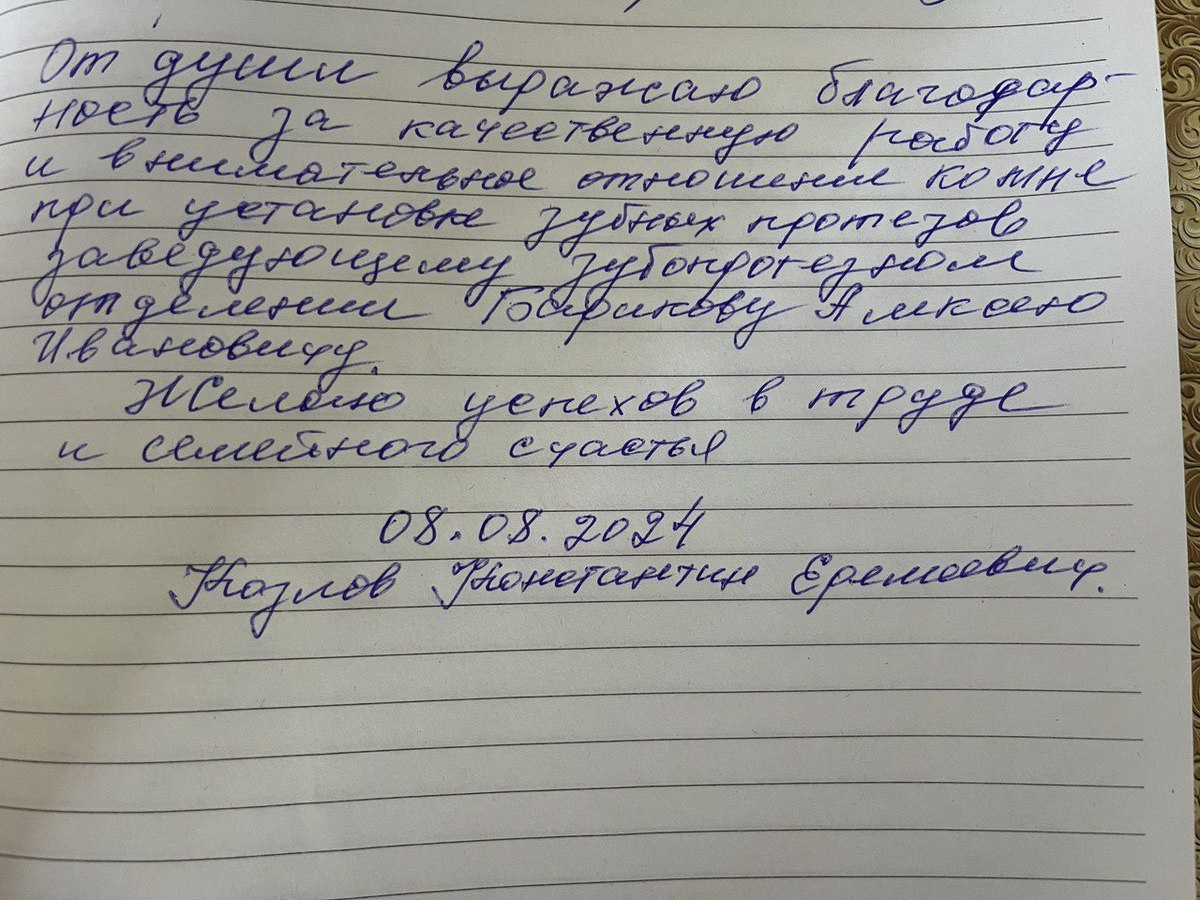 От души выражаю благодар-
ность за качественную работу
и внимательное отношении ко мне
при установке зубных протезов
заведующему зубопротезном
отделении Барикову Алксею
Ивановичу.
Желаю успехов в труде
и семейного счастья
08.08.2024
Козлов Константин Еремеевич.